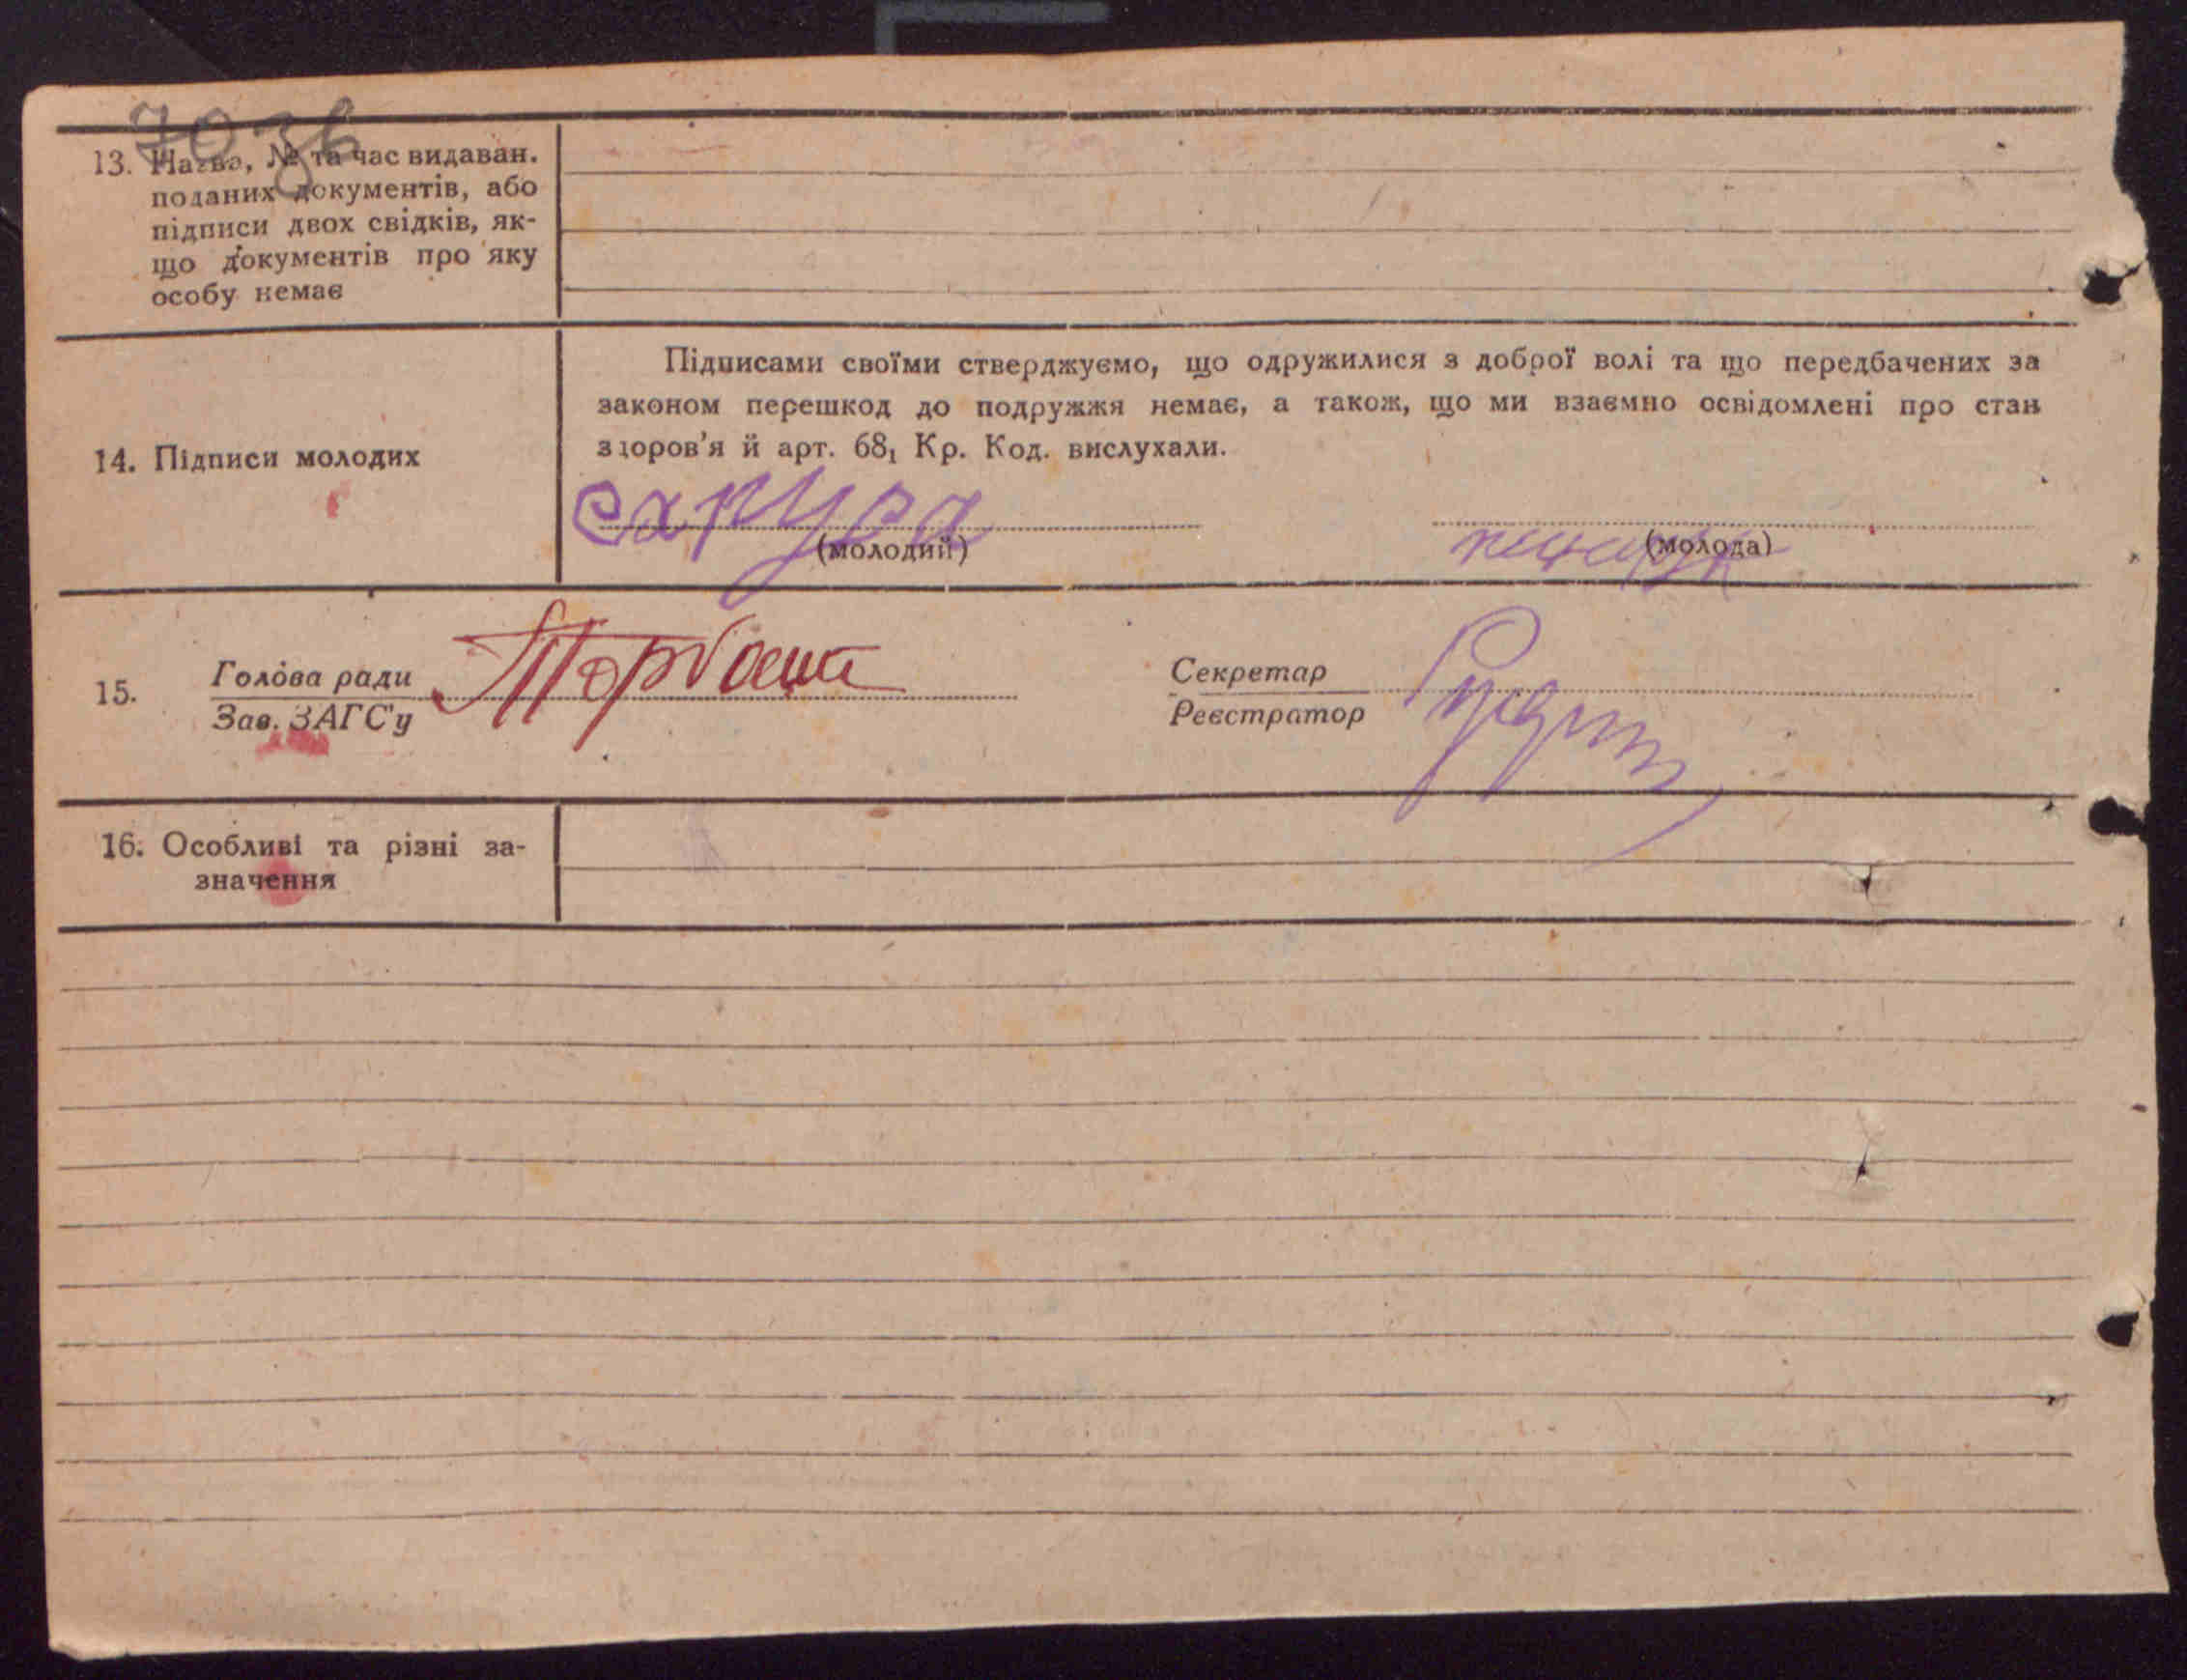 13. Назва, № та час видаван.
поданих документів, або
підписи двох свідків, як-
що документів про яку
особу немає
14. Підписи молодих
Підписами своїми стверджуємо, що одружилися з доброї волі та що передбачених за
законом перешкод до подружжя немає, а також, що ми взаємно освідомлені про стан
здоров'я й арт. 68₁ Кр. Код. вислухали.
(молодий)
(молода)
15. Голова ради
Зав. ЗАГС'у
Секретар
Реєстратор
16. Особливі та різні за-
значення